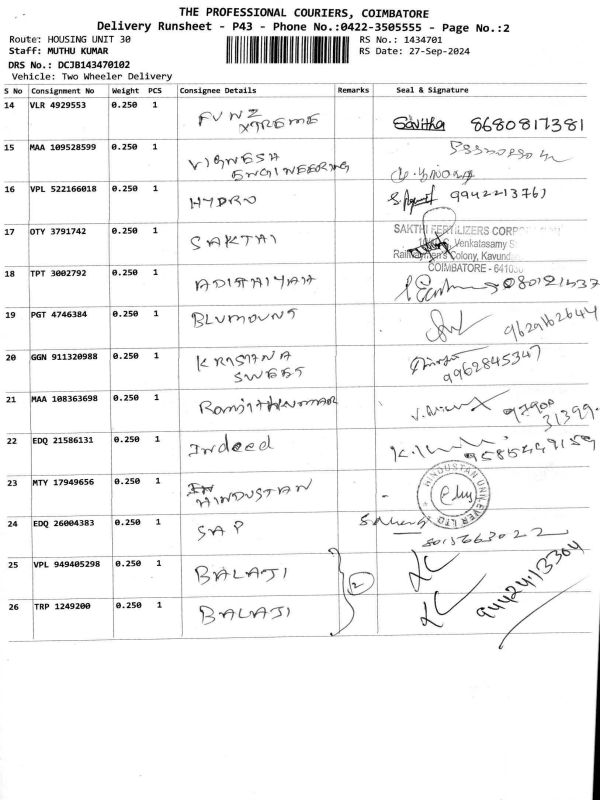 THE PROFESSIONAL COURIERS, COIMBATORE
Delivery Runsheet - P43 - Phone No.:0422-3505555 - Page No.:2
Route: HOUSING UNIT 30 RS No.: 1434701
Staff: MUTHU KUMAR RS Date: 27-Sep-2024
DRS No.: DCJB143470102
Vehicle: Two Wheeler Delivery
S No Consignment No Weight PCS Consignee Details Remarks Seal & Signature
14 VLR 4929553 0.250 1 FUNZ XTREME Savitha 8680817381
15 MAA 109528599 0.250 1 VIGNESH ENGINEERING
16 VPL 522166018 0.250 1 HYDRO 9942213761
17 OTY 3791742 0.250 1 SAKTHI SAKTHI FERTILIZERS
Venkatasamy
Colony, Kavund
COIMBATORE - 641030
18 TPT 3002792 0.250 1
19 PGT 4746384 0.250 1 BLUMOUNT 9629162644
20 GGN 911320988 0.250 1 KRISHNA SWEETS 9962845347
21 MAA 108363698 0.250 1 97900 31399
22 EDQ 21586131 0.250 1 Indeed 9585549159
23 MTY 17949656 0.250 1 HINDUSTAN HINDUSTAN UNILEVER LTD
24 EDQ 26004383 0.250 1 SAP 8015663022
25 VPL 949405298 0.250 1 BALAJI 2
26 TRP 1249200 0.250 1 BALAJI 9442413304